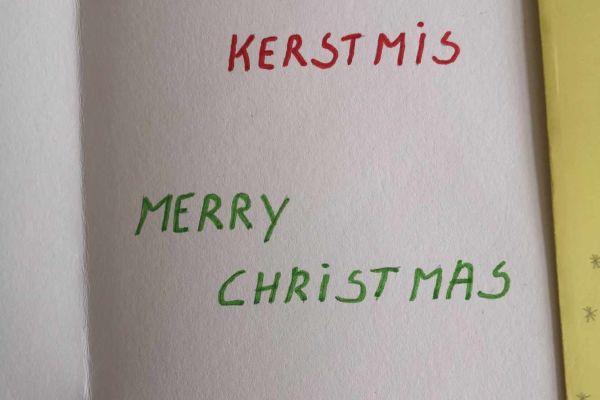 KERSTMiS
MERRY
CHRiSTMAS